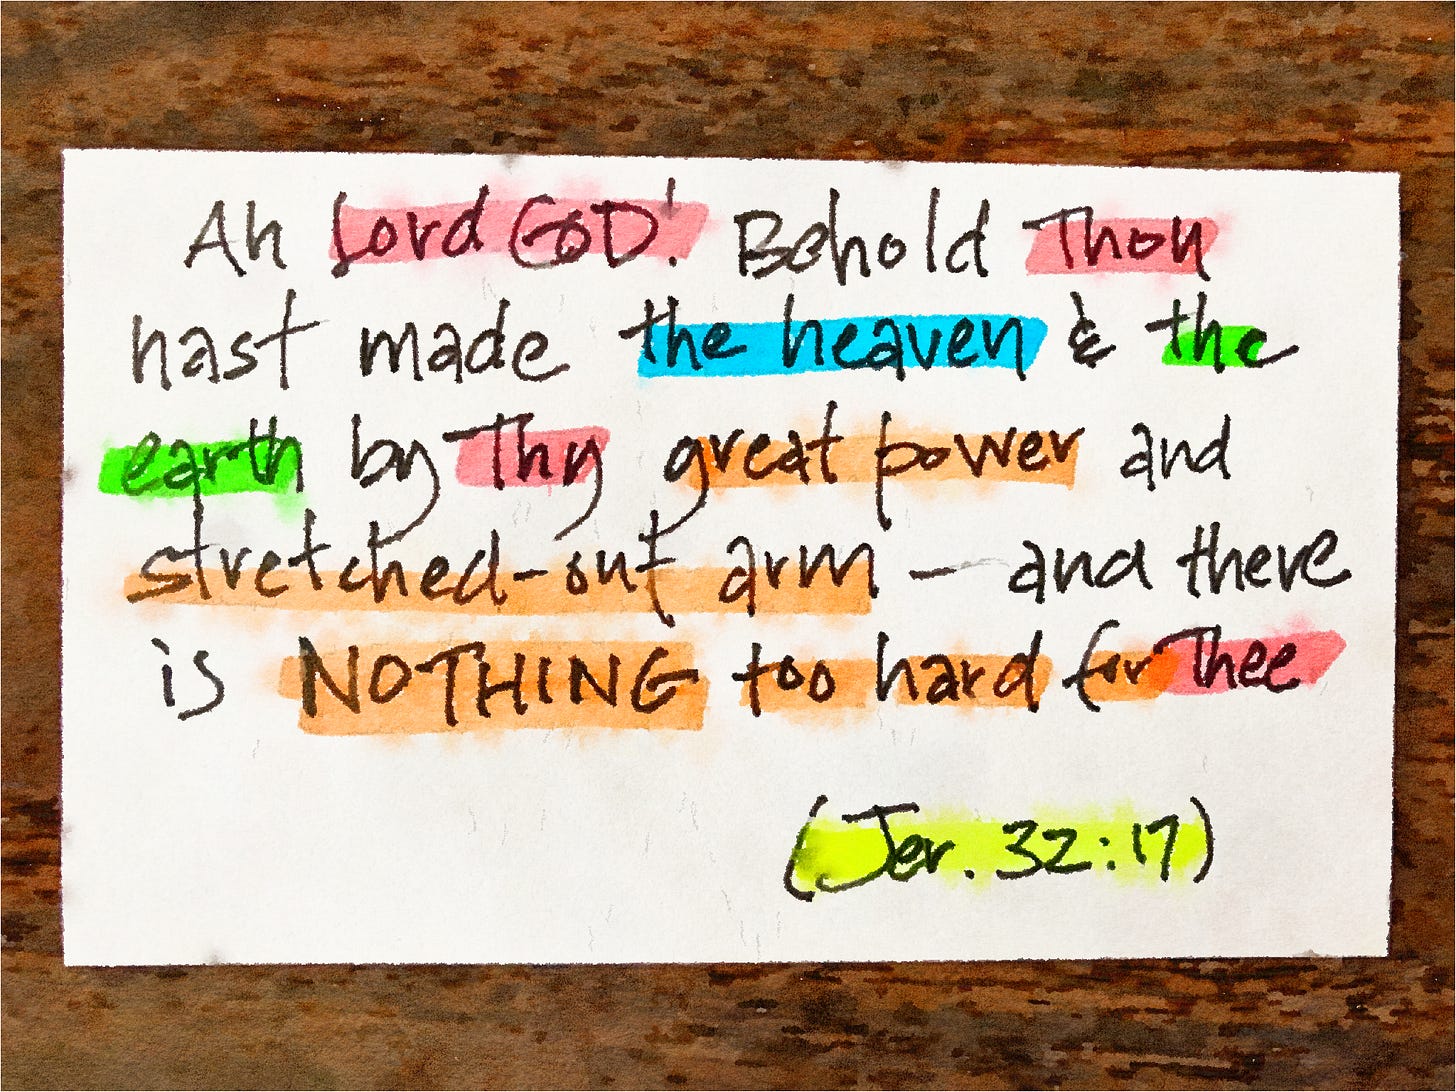 Ah Lord GOD! Behold Thou
hast made the heaven & the
earth by Thy great power and
stretched-out arm — and there
is NOTHING too hard for Thee
(Jer. 32:17)